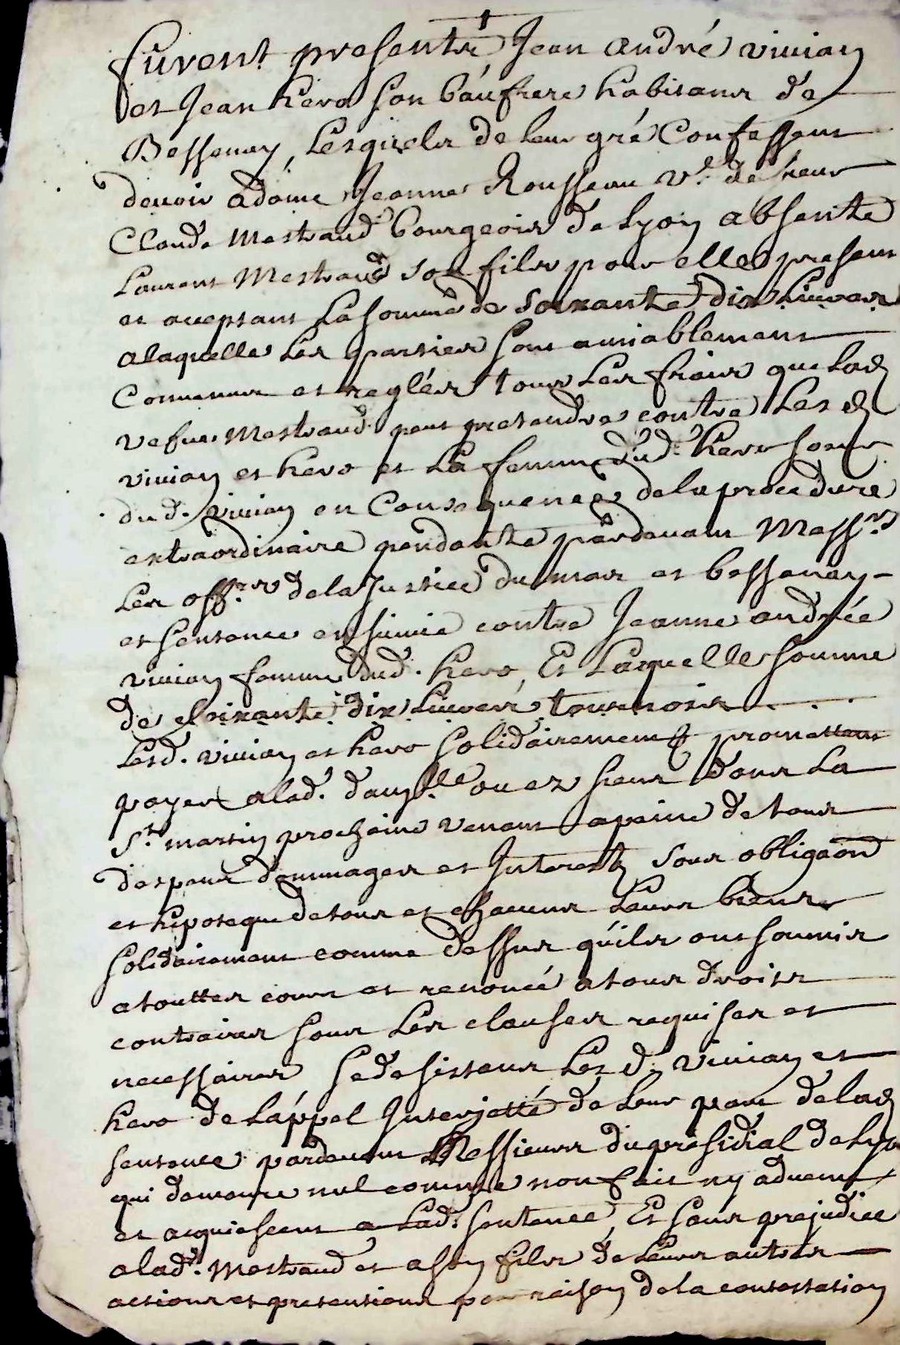 furent presents Jean andré vivian
et Jean hero son baufrere habitans de
Bessenay, Lesquels de leur gré Confessent
devoir a dame Jeanne Rousseau ve. de sieur
Claude Mestraud bourgeois de Lyon absente
Laurent Mestraud son fils pour elle present
et aceptant La somme de soixante dix Livres
a laquelle Les parties sont amiablement
Convenues et reglés tous Les frais que Lad
vefue Mestraud peut pretendre contre Les d
vivian et hero et La femme dud. hero soeur
dud. vivian en Consequence de la procedure
extraordinaire pendante pardevant Messrs
Les offrs de la Justice du mas et bessenay
et sentence ensuivie contre Jeanne andrée
vivian femme dud. hero, Et Laquelle somme
de soixante dix Livres tournois
Lesd. vivian et hero solidairement promettent
payer alad. damlle ou ez siens dans La
St. martin prochaine venant a peine de tous
despens dommages et Interests sous obligaon
et hipoteque de tous et chacuns Leurs biens
solidairement comme dessus quils ont soumis
a touttes cours et renoncé a tous droits
contraires sous Les clauses requises et
necessaires se desistant Les d. vivian et
hero de Lappel Interjetté de Leur part de lad
sentence pardevant Messieurs du presidial de Lyon
qui demeure nul comme non fait ny advenu
et acquiescent a Lad. sentence, Et sans prejudice
alad. Mestraud et a son fils de Leurs autres
actions et pretentions pour raison de la contestation